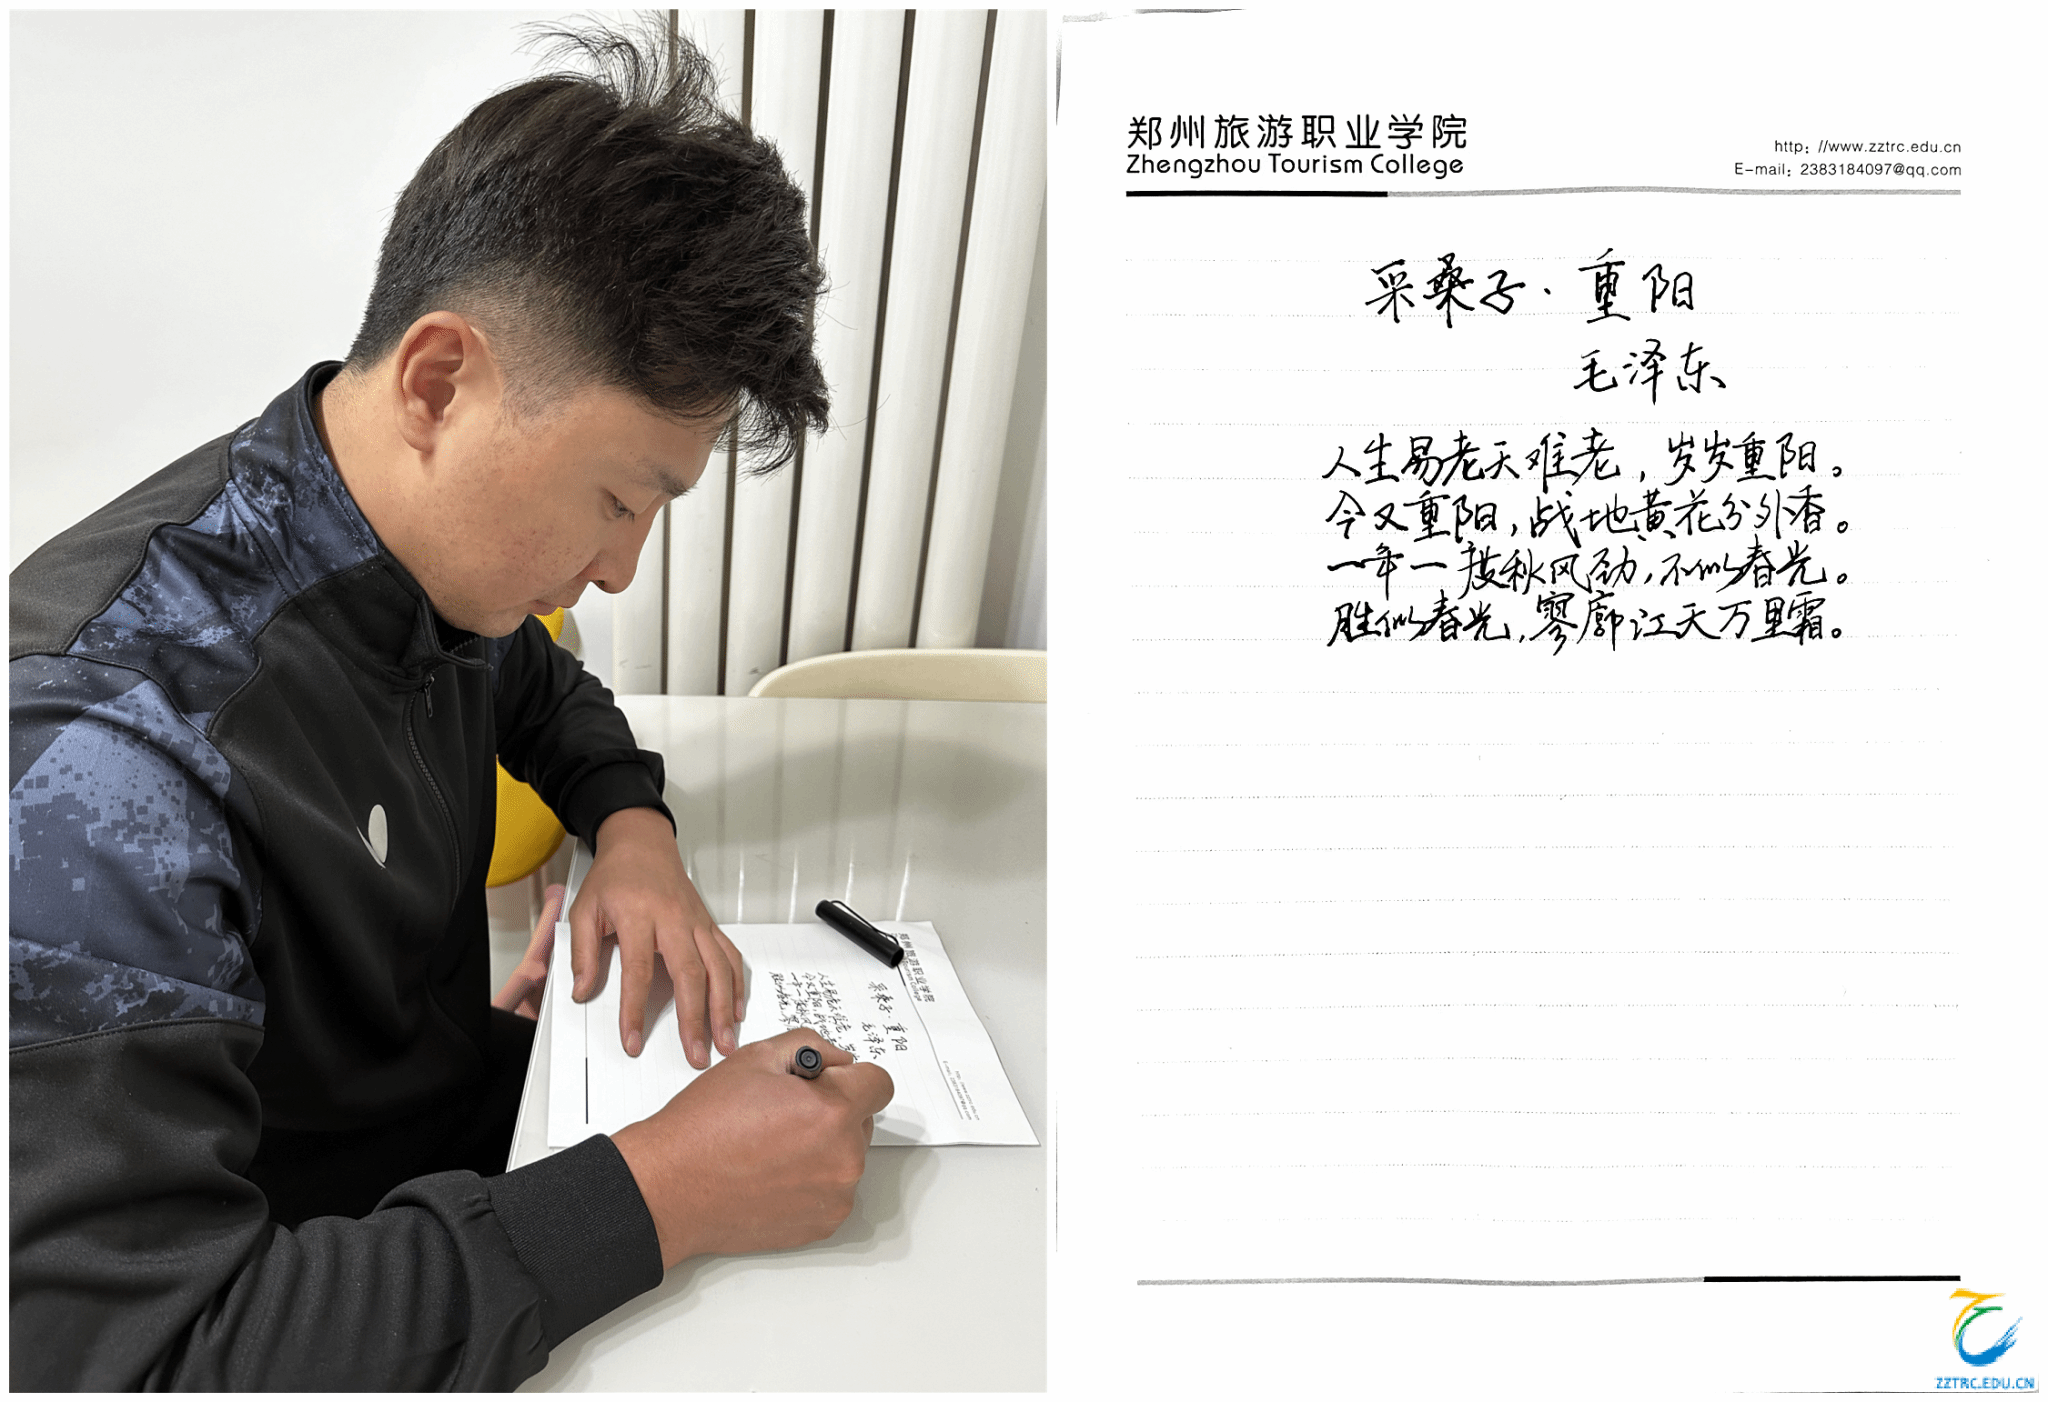 郑州旅游职业学院
Zhengzhou Tourism College
http: //www.zztrc.edu.cn
E-mail: 2383184097@qq.com
采桑子·重阳
毛泽东
人生易老天难老，岁岁重阳。
今又重阳，战地黄花分外香。
一年一度秋风劲，不似春光。
胜似春光，寥廓江天万里霜。
郑州旅游职业学院
采桑子·重阳
毛泽东
ZZTRC.EDU.CN